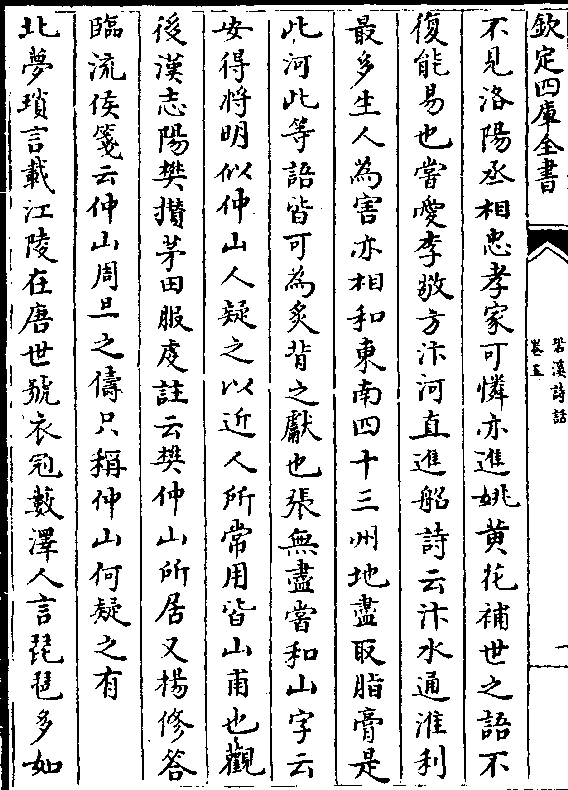 欽定四庫全書
䂬溪詩話
卷五
一
不見洛陽丞相忠孝家可憐亦進姚黃花補世之語不
復能易也嘗愛李敬方汴河直進船詩云汴水通淮利
最多生人為害亦相和東南四十三州地盡取脂膏是
此河此等語皆可為炙背之獻也張無盡嘗和山字云
安得將明似仲山人疑之以近人所常用皆山甫也觀
後漢志陽樊攢茅田服䖍註云樊仲山所居又楊修答
臨流侯箋云仲山周旦之儔只稱仲山何疑之有
北夢瑣言載江陵在唐世號衣冠藪澤人言琵琶多如